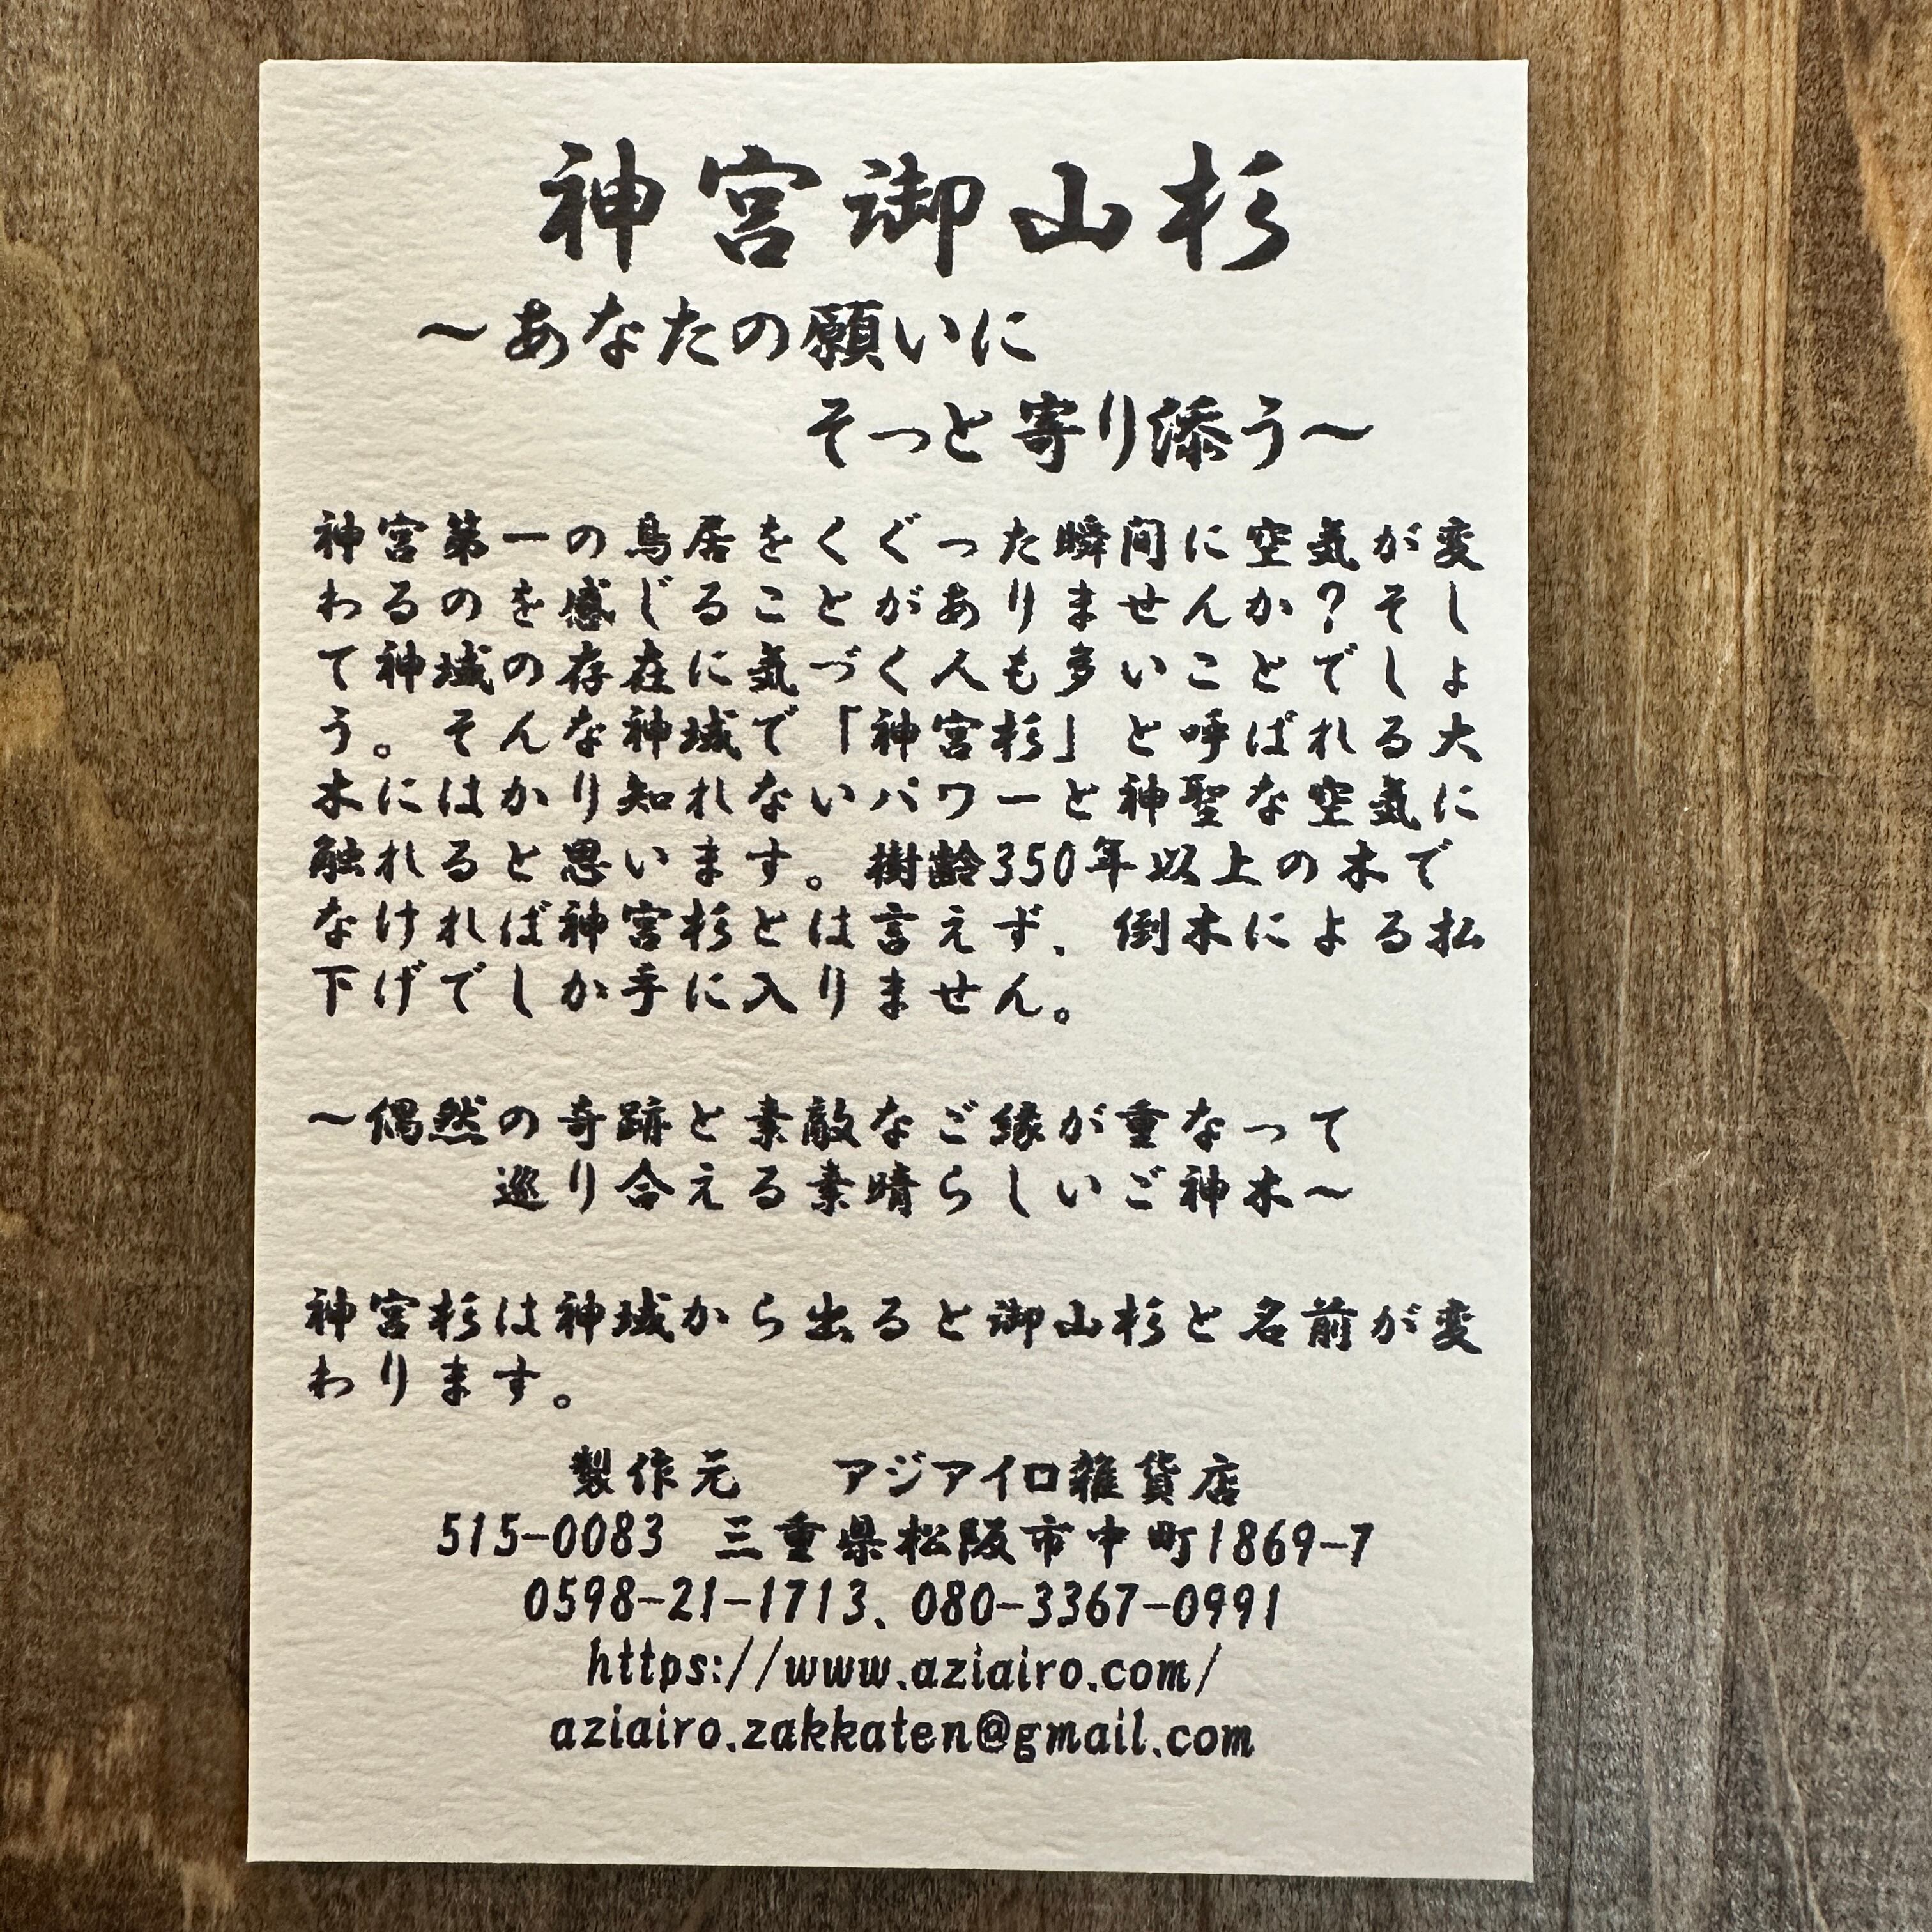 神宮御山杉
～あなたの願いに
そっと寄り添う～
神宮第一の鳥居をくぐった瞬間に空気が変
わるのを感じることがありませんか？そし
て神域の存在に気づく人も多いことでしょ
う。そんな神域で「神宮杉」と呼ばれる大
木にはかり知れないパワーと神聖な空気に
触れると思います。樹齢350年以上の木で
なければ神宮杉とは言えず、倒木による払
下げでしか手に入りません。
～偶然の奇跡と素敵なご縁が重なって
巡り合える素晴らしいご神木～
神宮杉は神域から出ると御山杉と名前が変
わります。
製作元　アジアイロ雑貨店
515-0083　三重県松阪市中町1869-7
0598-21-1713、080-3367-0991
https://www.aziairo.com/
aziairo.zakkaten@gmail.com